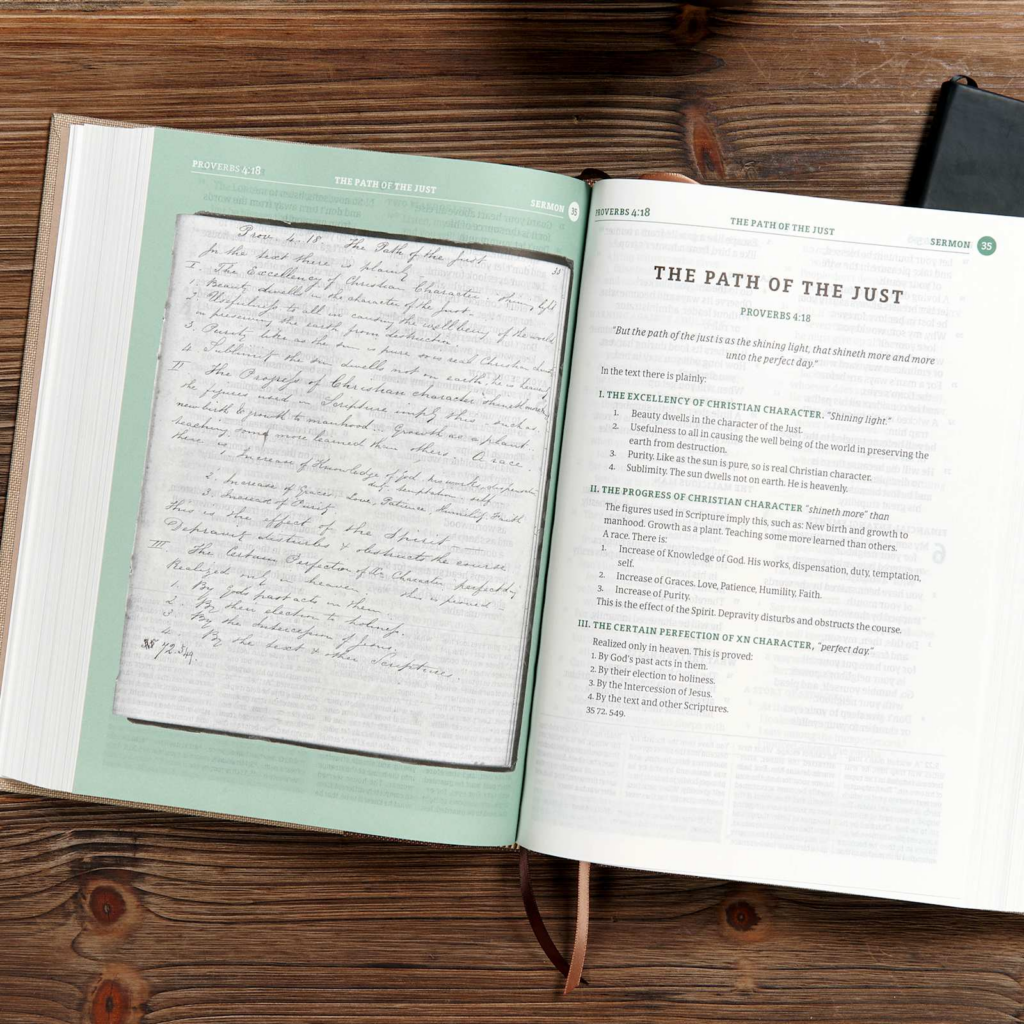 PROVERBS 4:18
THE PATH OF THE JUST
SERMON 35
Prov. 4. 18. The Path of the Just. 35
In the text there is plainly
I. The Excellency of Christian Character. Shining light
1. Beauty dwells in the character of the Just.
2. Usefulness to all in causing the well being of the world
in preserving the earth from destruction.
3. Purity. Like as the sun is pure so is real Christian char.
4. Sublimity the sun dwells not on earth. he is heavy
II The Progress of Christian character shineth more
the figures used in Scripture imply this, such as
new birth & growth to manhood. Growth as a plant
teaching some more learned than others. A race.
there is
1. Increase of Knowledge of God, his works, dispensation
duty, temptation, self
2. Increase of Graces. Love, Patience, Humility, Faith
3. Increase of Purity.
this is the effect of the Spirit. —
Depravity disturbs & obstructs the course
III. The Certain Perfection of Xn Character perfect day
Realized only in heaven. this is proved —
1. By Gods past acts in them.
2. By their election to holiness.
3. By the intercession of Jesus.
4. By the text & other Scriptures.
35 72.549.
PROVERBS 4:18
THE PATH OF THE JUST
SERMON 35
THE PATH OF THE JUST
PROVERBS 4:18
"But the path of the just is as the shining light, that shineth more and more
unto the perfect day."
In the text there is plainly:
I. THE EXCELLENCY OF CHRISTIAN CHARACTER. "Shining light."
1. Beauty dwells in the character of the Just.
2. Usefulness to all in causing the well being of the world in preserving the
earth from destruction.
3. Purity. Like as the sun is pure, so is real Christian character.
4. Sublimity. The sun dwells not on earth. He is heavenly.
II. THE PROGRESS OF CHRISTIAN CHARACTER "shineth more" than
The figures used in Scripture imply this, such as: New birth and growth to
manhood. Growth as a plant. Teaching some more learned than others.
A race. There is:
1. Increase of Knowledge of God. His works, dispensation, duty, temptation,
self.
2. Increase of Graces. Love, Patience, Humility, Faith.
3. Increase of Purity.
This is the effect of the Spirit. Depravity disturbs and obstructs the course.
III. THE CERTAIN PERFECTION OF XN CHARACTER, "perfect day."
Realized only in heaven. This is proved:
1. By God's past acts in them.
2. By their election to holiness.
3. By the Intercession of Jesus.
4. By the text and other Scriptures.
35 72. 549.